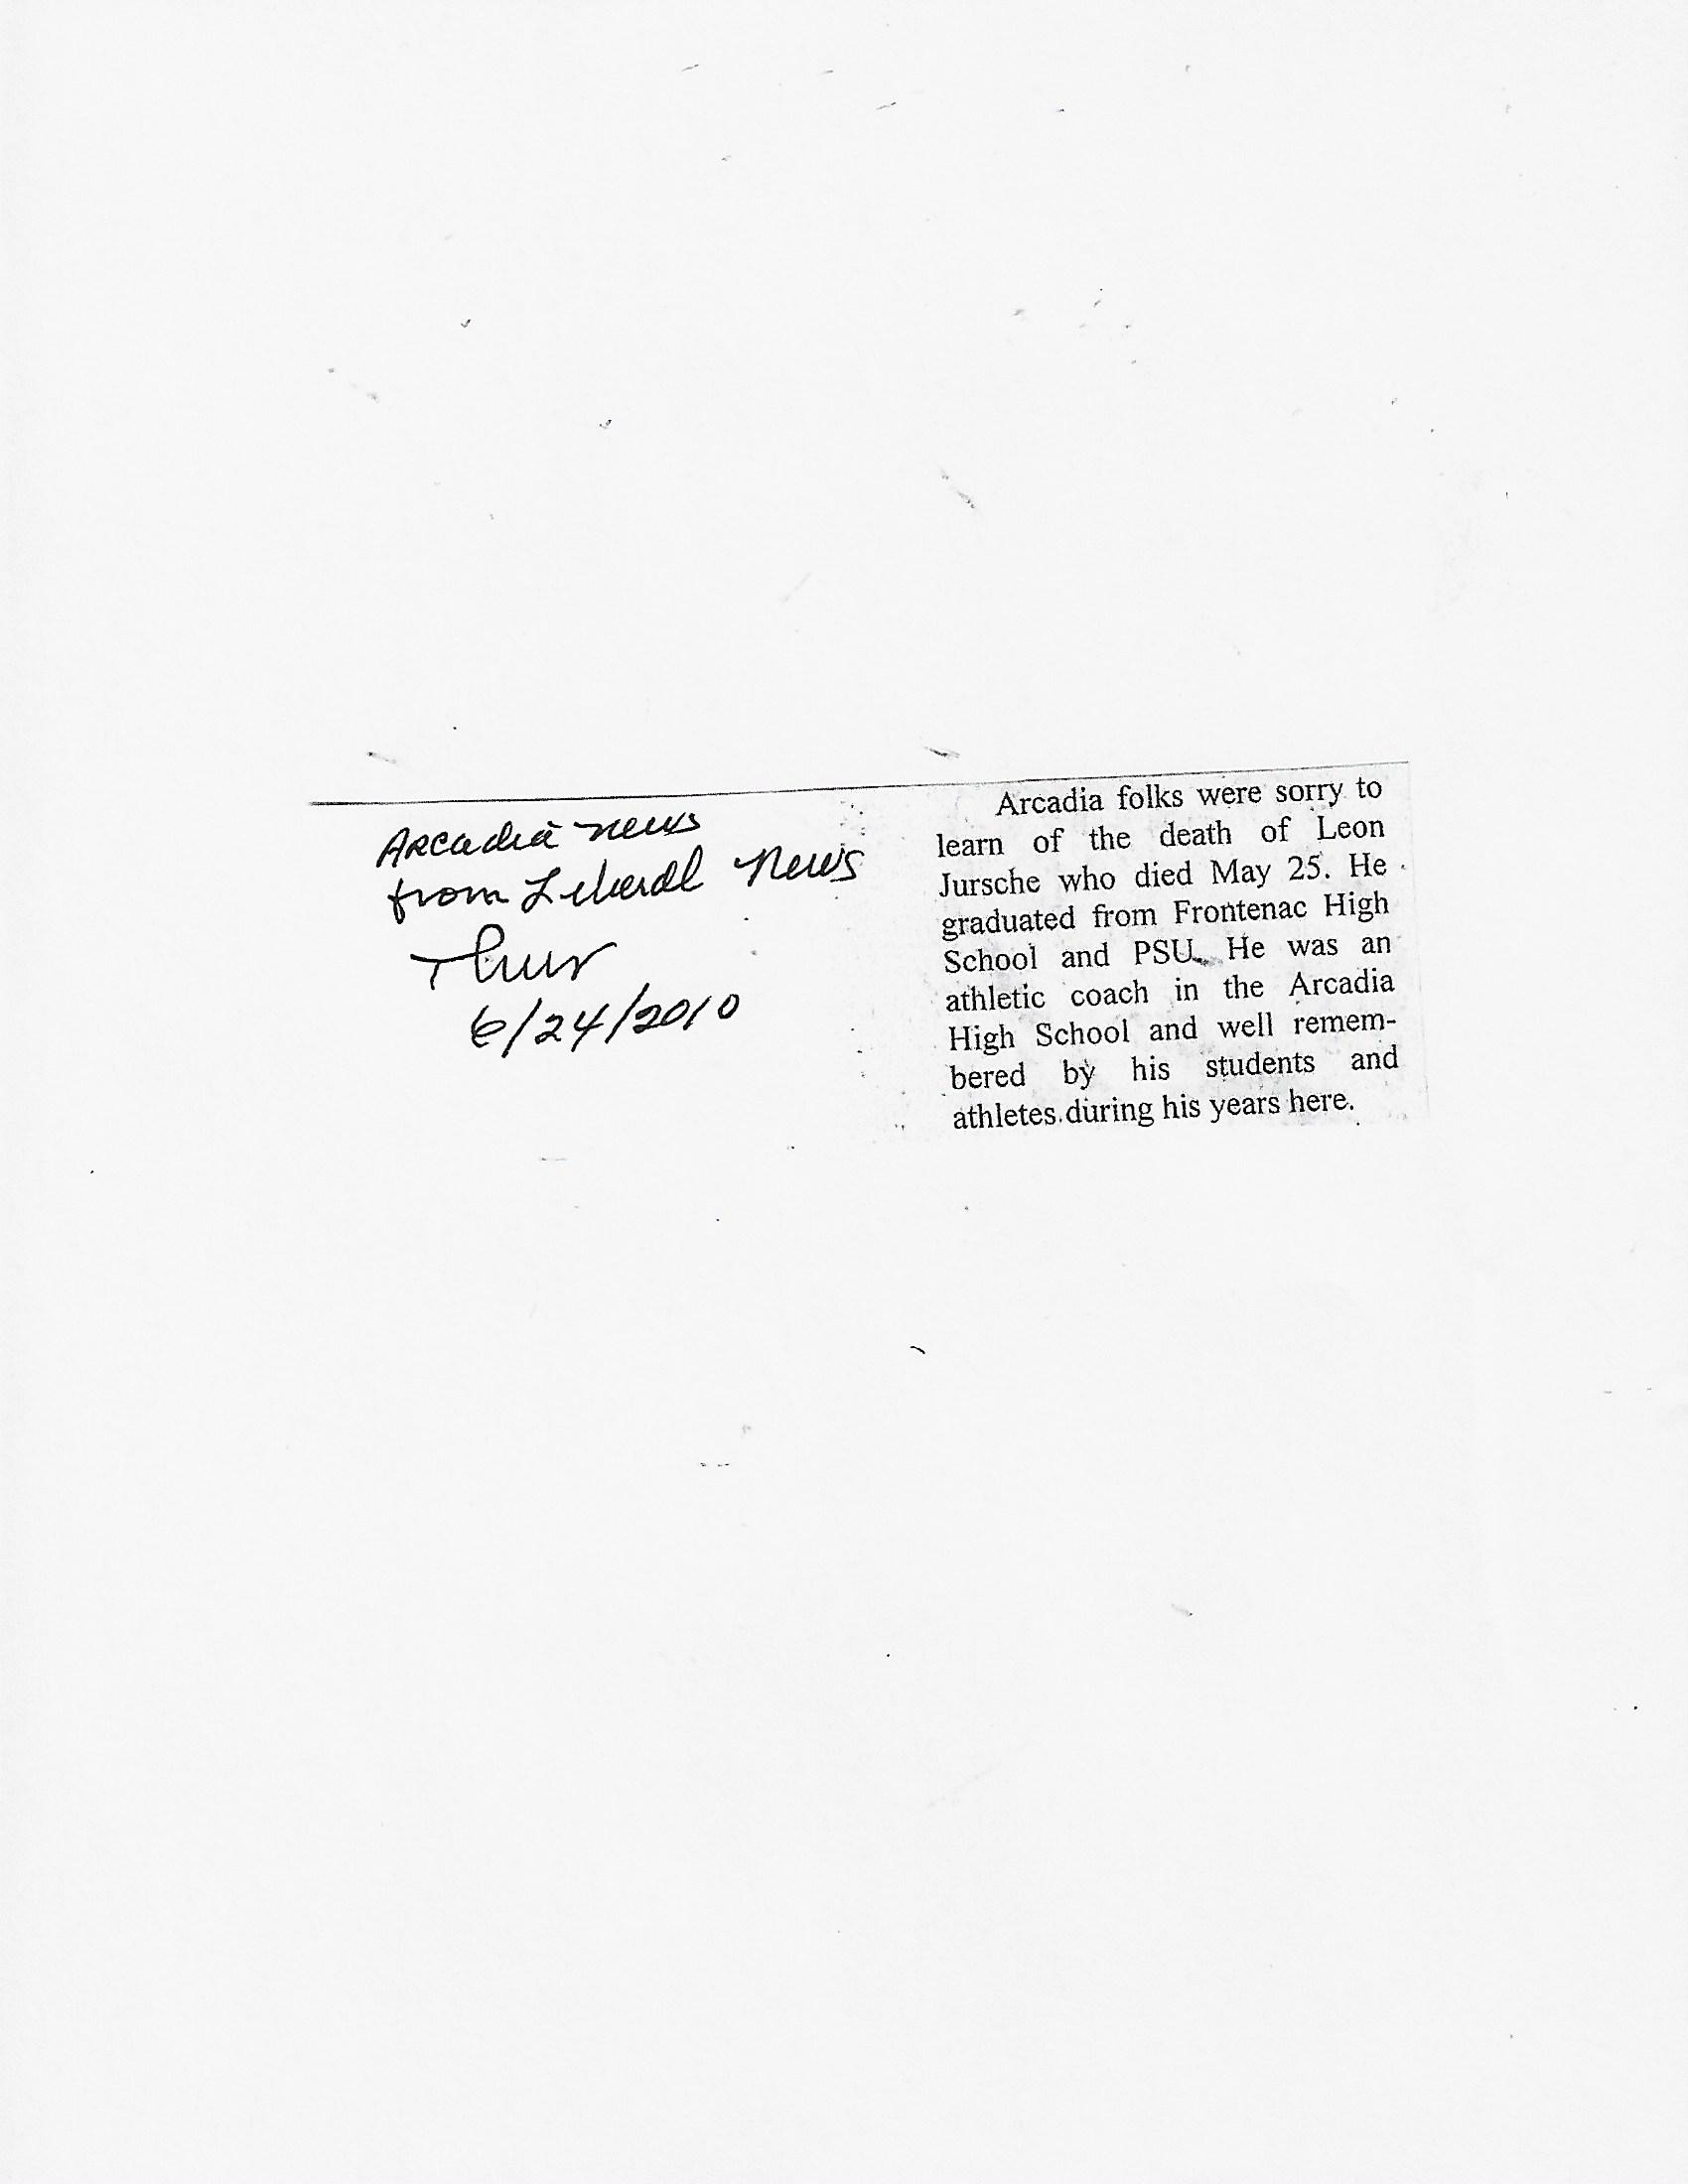 Arcadia news
from Liberal News
Thur
6/24/2010
Arcadia folks were sorry to
learn of the death of Leon
Jursche who died May 25. He
graduated from Frontenac High
School and PSU. He was an
athletic coach in the Arcadia
High School and well remem-
bered by his students and
athletes during his years here.